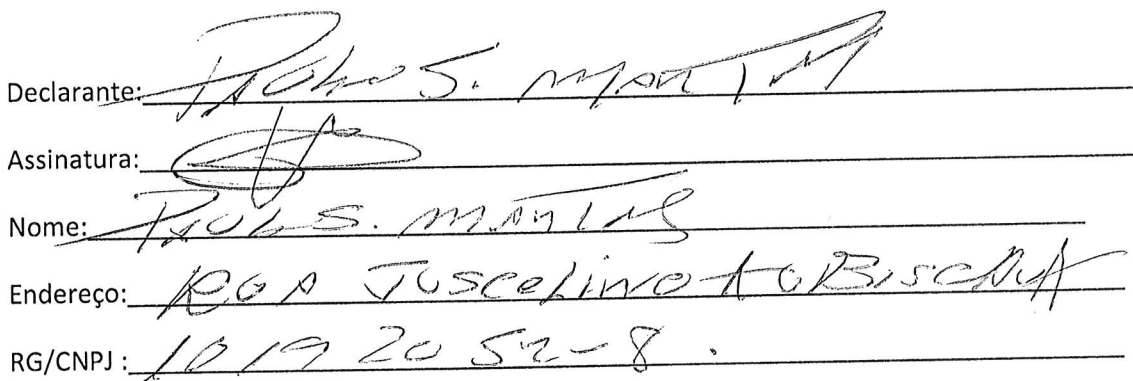 Declarante: PAULO S. MARTINS
Assinatura:
Nome: PAULO S. MARTINS
Endereço: RUA JUSCELINO KUBISCHUK
RG/CNPJ : 10192052-8.